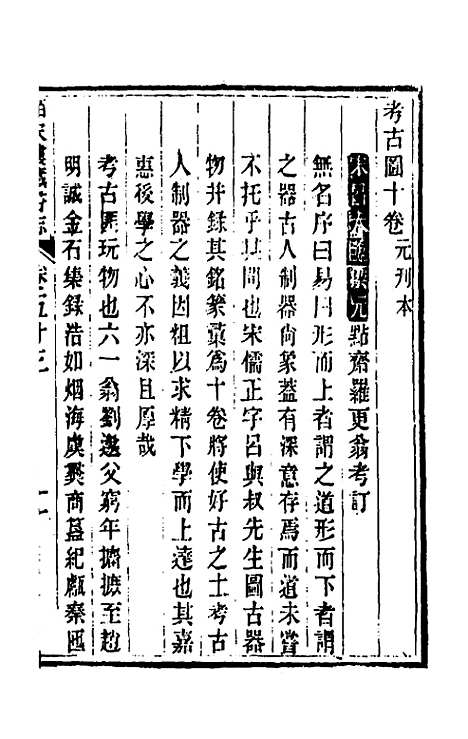 考古圖十卷 元刊本
宋呂大臨撰元默齋羅更翁考訂
無名序曰易曰形而上者謂之道形而下者謂
之器古人制器尚象蓋有深意存焉而道未嘗
不托乎其間也宋儒正字呂與叔先生圖古器
物并錄其銘篆彙爲十卷將使好古之士考古
人制器之義因粗以求精下學而上達也其嘉
惠後學之心不亦深且厚哉
考古匪玩物也六一翁劉邍父窮年摭摭至趙
明誠金石集錄浩如烟海虞彝商簋紀甗秦匜
宋樓藏書志 卷五十三